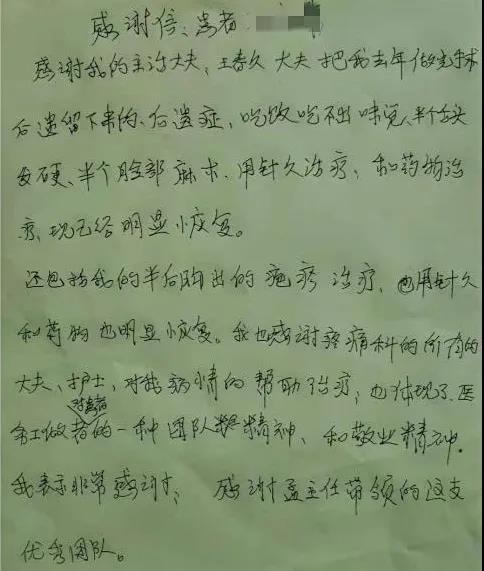 感谢信、患者
感谢我的主治大夫、王春久 大夫 把我去年做完手术
后遗留下来的、后遗症、吃饭吃不出 味觉、半个舌头
发硬、半个脸部 麻木. 用针久治疗, 和药物治
疗, 现已经 明显 恢复。
还包括我的半后胸出的 疱疹 治疗, 也用针久
和药物也明显恢复。我也感谢疼痛科的所有的
大夫、护士, 对我病情的帮助治疗, 也体现了 医
务工做者对患者的一种 团队 精神、和敬业精神.
我表示非常感谢; 感谢孟主任带领的这支
优秀团队。